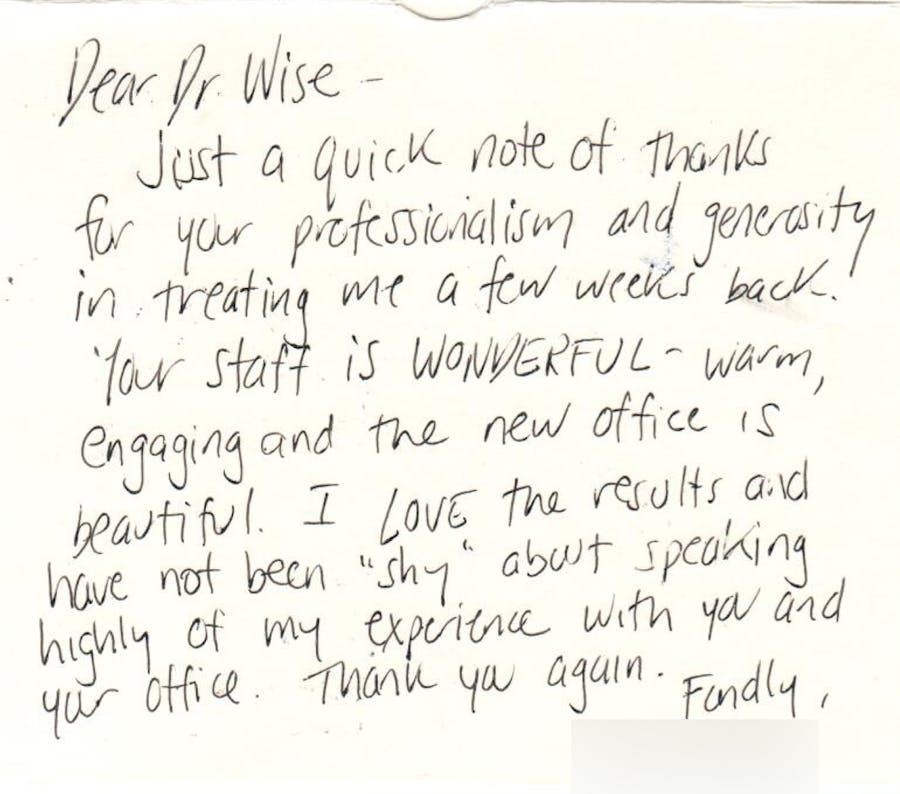 Dear Dr. Wise -
Just a quick note of thanks
for your professionalism and generosity
in treating me a few weeks back.
Your staff is WONDERFUL - warm,
engaging and the new office is
beautiful. I LOVE the results and
have not been "shy" about speaking
highly of my experience with you and
your office. Thank you again. Fondly,